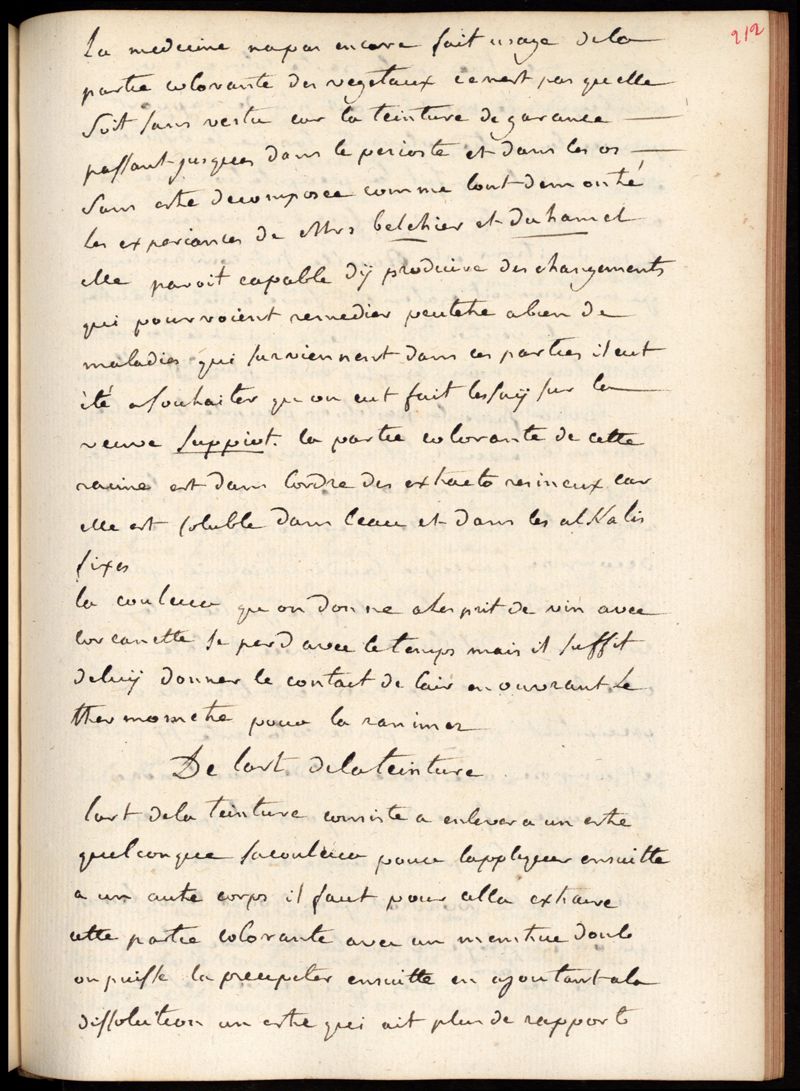 212
La medecine na pas encore fait usage dela
partie colorante des vegetaux ce nest pas quelle
Soit sans vertu car la teinture de garance
passant jusques dans le perioste et dans les os
Sans estre decomposee comme lont demontré
Les experiances de Mrs belchier et duhamel
elle paroit capable dÿ produire des changements
qui pourroient remedier peutetre a bien de
maladies qui surviennent dans ces parties il eut
ité a souhaiter qu on eut fait lessaÿ sur la
veuve Suppiot. la partie colorante de cette
racine est dans lordre des extracto resineux car
elle est soluble dans leau et dans les alKalis
fixes
la couleur qu on donne a lesprit de vin avec
lorcanette se perd avec le temps mais il suffit
de luÿ donner le contact de lair en ouvrant Le
thermometre pour la ranimer
De lart dela teinture
lart dela teinture consiste a enlever a un estre
quelconque sa couleur pour lappliquer ensuitte
a un autre corps il faut pour cella extraire
cette partie colorante avec un menstrue dont
on puisse la precipiter ensuitte en ajoutant ala
dissolution un estre qui ait plus de rapport